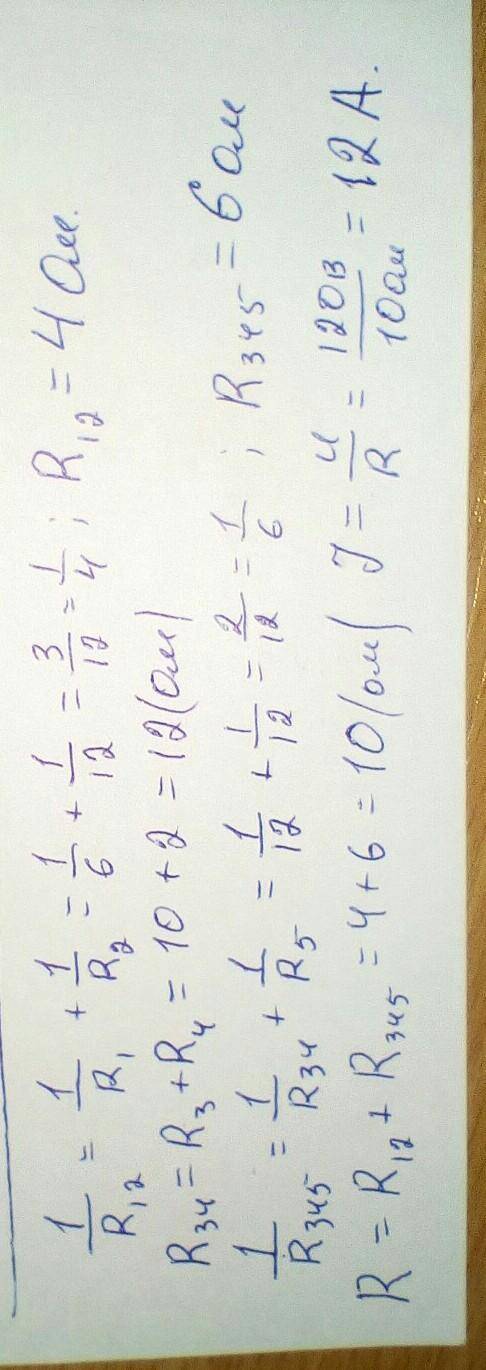 1/R₁₂ = 1/R₁ + 1/R₂ = 1/6 + 1/12 = 3/12 = 1/4 ; R₁₂ = 4 Ом.
R₃₄ = R₃ + R₄ = 10 + 2 = 12 (Ом)
1/R₃₄₅ = 1/R₃₄ + 1/R₅ = 1/12 + 1/12 = 2/12 = 1/6 ; R₃₄₅ = 6 Ом
R = R₁₂ + R₃₄₅ = 4 + 6 = 10 (Ом) J = U/R = 120В/10Ом = 12 А.